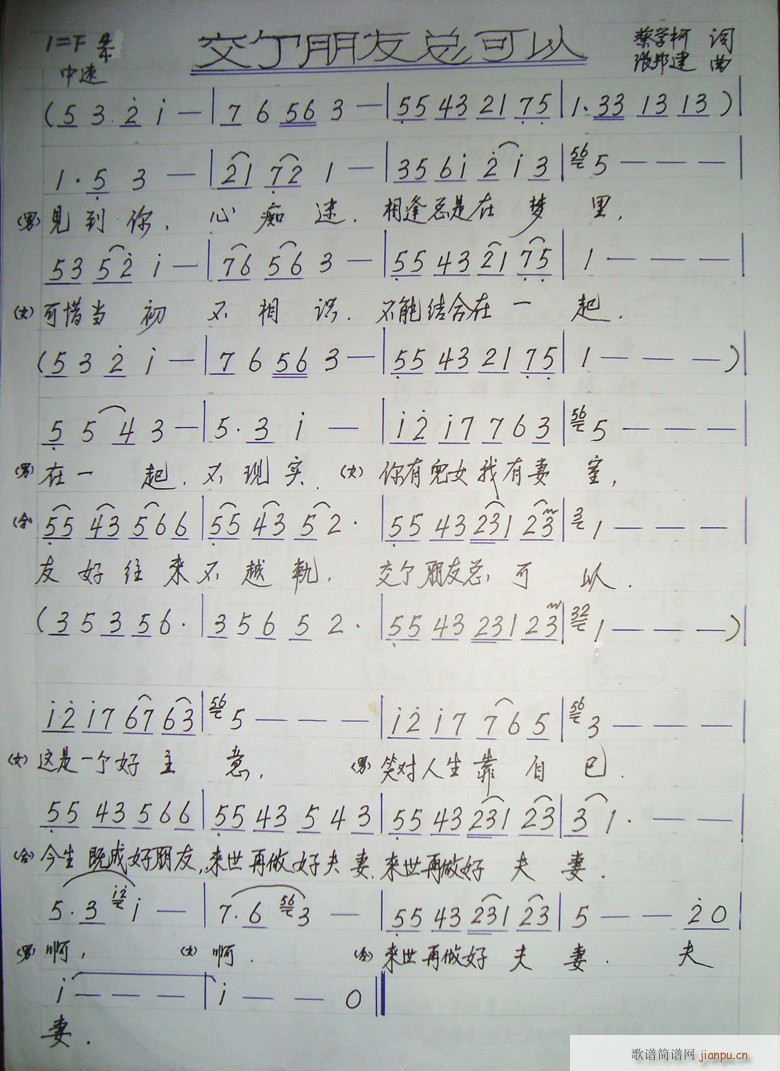 交了朋友总可以
1=F 4/4
中速
蔡学柯 词
邦建 曲
(5 3 2 i — | 7 6 56 3 — | 55 43 21 75 | 1·33 13 13 )
1·5 3 — | 21 72 1 — | 356i 2 i 3 | 56 5 — — —
(男)见到你, 心痴迷. 相逢总是在梦里,
53 52 i — | 76 56 3 — | 55 43 21 75 | 1 — — —
(女)可惜当初不相识. 不能结合在一起.
(5 3 2 i — | 7 6 56 3 — | 55 43 21 75 | 1 — — — )
5 5 4 3 — | 5·3 i — | i2 i7 7 6 3 | 56 5 — — —
(男)在一起. 不现实. (女)你有儿女我有妻室,
55 43 566 | 55 43 5 2· | 55 43 231 23 | 3 1 — — —
(合)友好往来不越轨. 交了朋友总可以.
(3 5 3 5 6· | 3 5 6 5 2· | 55 43 231 23 | 32 1 — — — )
i2 i7 67 63 | 56 5 — — — | i2 i7 7 6 5 | 56 3 — — —
(女)这是一个好主意, (男)笑对人生靠自己.
55 43 566 | 55 43 5 4 3 | 55 43 231 23 | 3 1· — —
(合)今生既成好朋友, 来世再做好夫妻. 来世再做好夫妻.
5·3 i2 i — | 7·6 56 3 — | 55 43 231 23 | 5 — — 20
(男)啊, (女)啊. (合)来世再做好夫妻. 夫
i — — — | i — — 0
妻.
歌谱简谱网 jianpu.cn